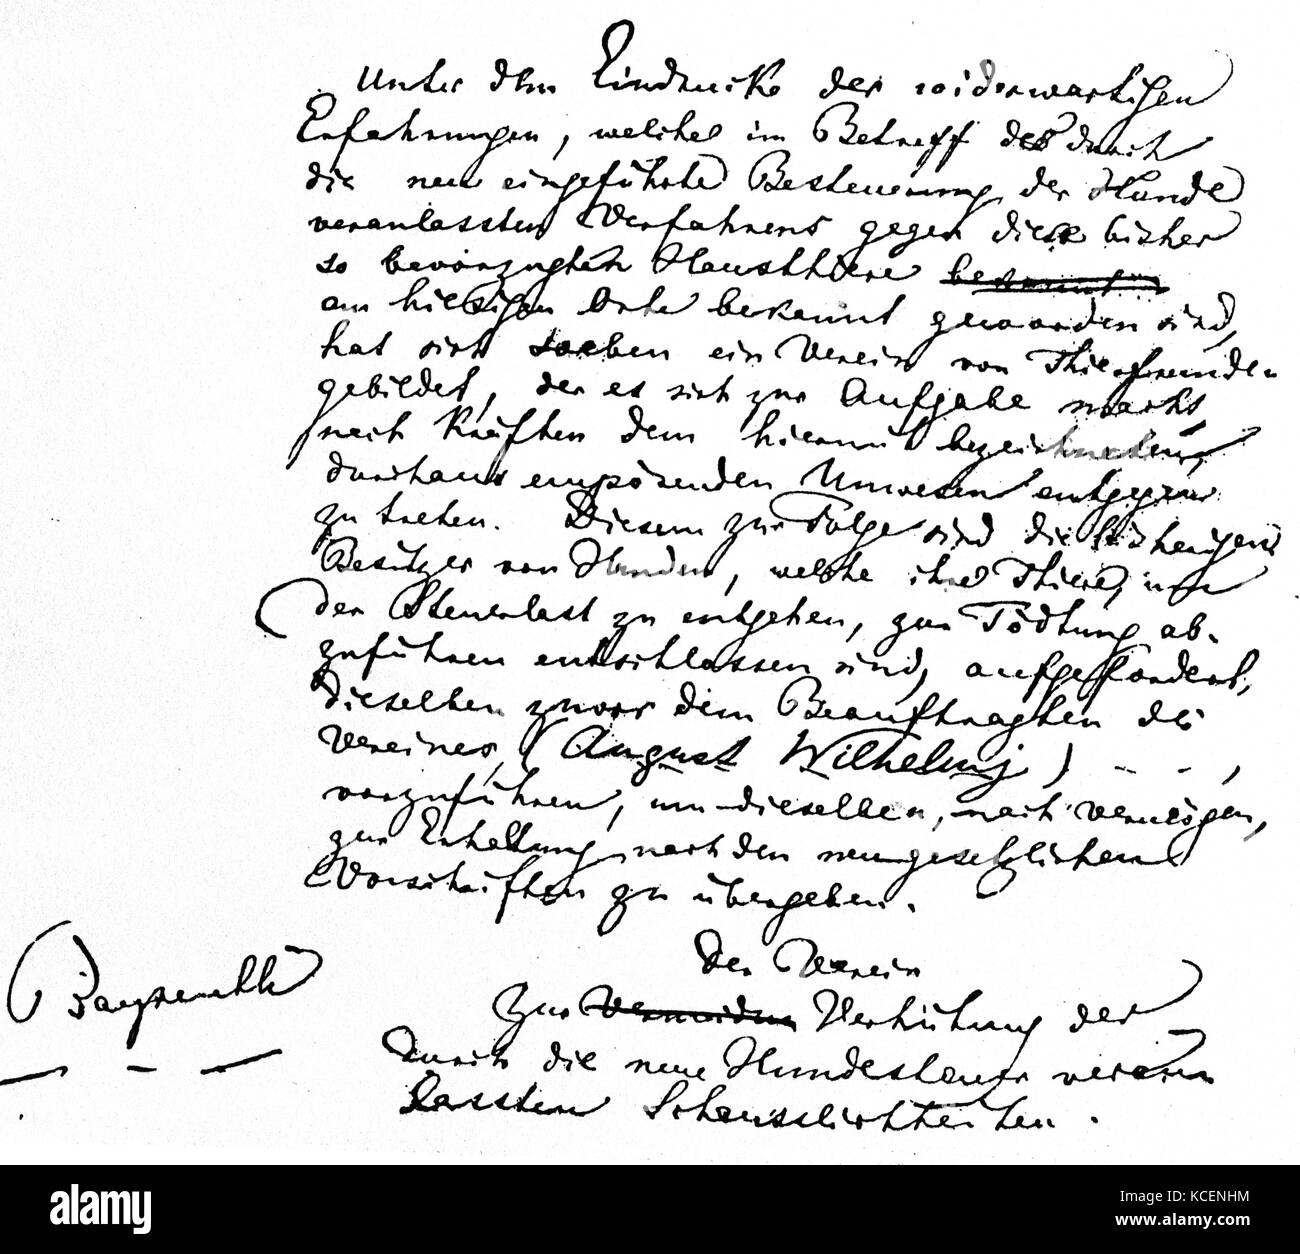 Unter dem Eindrucke der widerwärtigen
Erfahrungen, welche im Betreff des durch
die neu eingeführte Besteuerung der Hunde
veranlassten Verfahrens gegen diese bisher
so bevorzugten Hausthiere bekannt
am hiesigen Orte bekannt geworden sind,
hat sich soeben ein Verein von Thierfreunden
gebildet, der es sich zur Aufgabe macht,
nach Kräften dem hiermit bezeichneten,
durchaus empörenden Unwesen entgegen
zu treten. Diesem zur Folge sind die bisherigen
Besitzer von Hunden, welche ihre Thiere, um
der Steuerlast zu entgehen, zur Tödtung ab-
zuführen entschlossen sind, aufgefordert,
dieselben zuvor dem Beauftragten des
Vereines, (August Wilhelmj) - - -,
vorzuführen, um dieselben, nach Vermögen,
zur Erhaltung nach den neugesetzlichen
Vorschriften zu übergeben.
Der Verein
zur Vermeidung Verhütung der
durch die neue Hundesteuer veran
lassten Scheusslichkeiten.
Bayreuth
alamy
a
Image ID: KCENHM
www.alamy.com